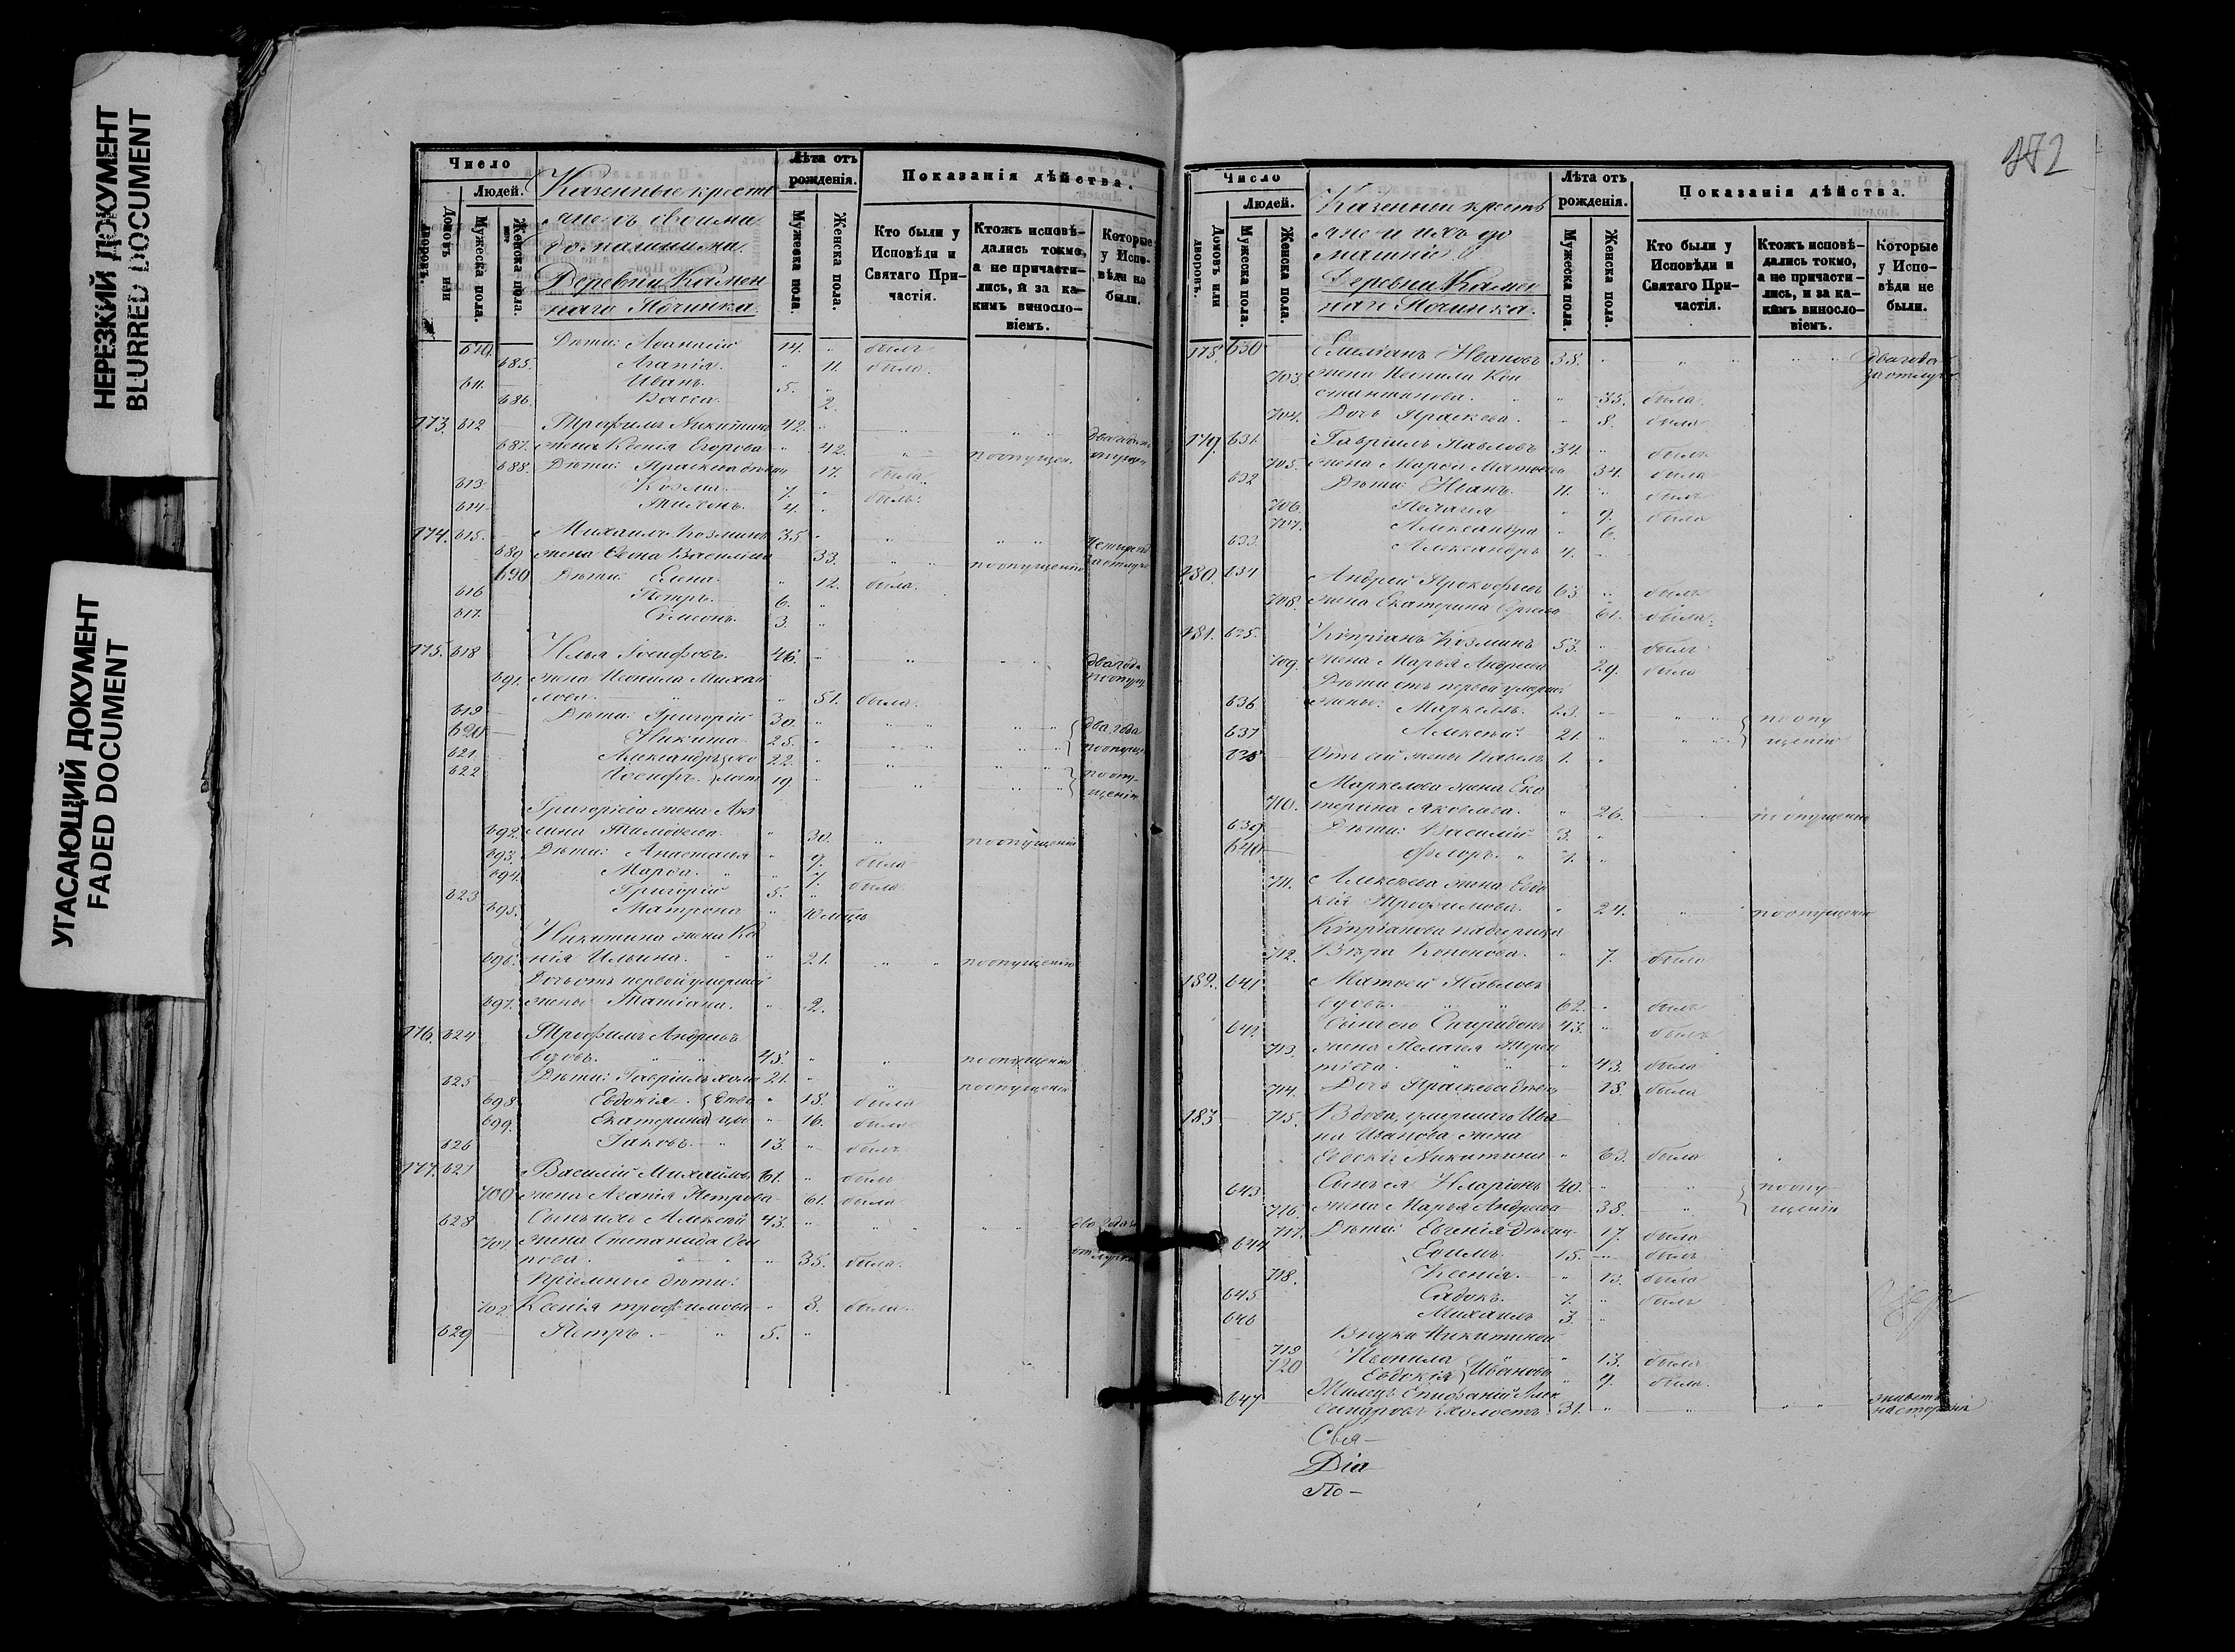 НЕРЕЗКИЙ ДОКУМЕНТ
BLURRED DOCUMENT
УГАСАЮЩИЙ ДОКУМЕНТ
FADED DOCUMENT
Число
Людей.
Домовъ или дворовъ.
Мужеска пола.
Женска пола.
Казенные крестья
яне съ своими
домашними.
Деревни Камен
наго Починка.
Лѣта отъ рожденія.
Мужеска пола.
Женска пола.
Показанія дѣйства.
Кто были у Исповѣди и Святаго Причастія.
Ктожъ исповѣдались токмо, а не причастились, и за какимъ винословіемъ.
Которые у Исповѣди не были.
610. Дѣти: Афанасій 14. " былъ
685. Агапія. " 11. была.
611. Иванъ. 5. "
686. Васса. 2.
173. 612 Трофимъ Никитинъ 42. "
687. жена Ксенія Егорова " 42. по опущен.
688. Дѣти: Праскева дѣвица 17. была.
613. Козма. 7. "
614 Тихонъ. 4. " былъ.
174. 615. Михаилъ Козминъ 35 "
689 жена Фекла Василіева 33. по опущенію
690 Дѣти: Елена. " 12. была.
616 Петръ. 6. "
617. Симеонъ. 3. "
175. 618 Илья Іосифовъ. 46. " два года по опущ.
691. жена Неонила Михай
лова. " 51. была.
619 Дѣти: Григорій 30. " два года
620 Никита 25. " по опущ.
621. Александръ хо 22. " по опу-
622 Іосифъ. лост 19. щенію
Григоріева жена Аки
692. лина Тимофеева. " 30. по опущенію
693. Дѣти: Анастасія " 9. была
694. Марфа. " 7. была.
623 Григорій 5. "
695. Матрона " 10 мѣсяц
Никитина жена Ксе
696. нія Ильина. " 21. по опущенію
Дочь отъ первой умершей
697. жены Татіана. " 2.
176. 624 Трофимъ Андреевъ
вдовъ. 48. " по опущенію
625 Дѣти: Гавріилъ холо 21. " по опущенію
698. Евдокія. дѣви " 18. была
699. Екатерина цы " 16. была
626 Іаковъ. 13. " былъ
177. 627 Василій Михайловъ 61. " былъ
700 жена Агапія Петрова 61. была
628 Сынъ ихъ Алексѣй 43. " два года за отлучк.
701. жена Степанида Фи
нова. " 35. была.
Пріемные дѣти:
702. Ксенія Трофимова " 8. была.
629 Петръ. 5. "
372
Число
Людей.
Домовъ или дворовъ.
Мужеска пола.
Женска пола.
Казенныи кресть
яне и ихъ до
машніи.
Деревни Камен
наго Починка.
Лѣта отъ рожденія.
Мужеска пола.
Женска пола.
Показанія дѣйства.
Кто были у Исповѣди и Святаго Причастія.
Ктожъ исповѣдались токмо, а не причастились, и за какимъ винословіемъ.
Которые у Исповѣди не были.
178. 630 Емеліанъ Ивановъ 38. " два года за отлуч.
703. жена Неонила Кон
стантинова. " 35. была.
704. Дочь Праскева. " 8. была
179. 631. Гавріилъ Павловъ 34. " былъ
705. жена Марфа Матвѣева 34. была
632 Дѣти: Иванъ. 11. " былъ
706. Пелагія " 9. была
707. Александра " 6.
633. Александръ 4. "
180. 634 Андрей Прокофьевъ 63. " былъ
708. жена Екатерина Сергѣева 61. была.
181. 635. Кипріанъ Козминъ 53. " былъ
709. жена Марья Андреева 29. была
Дѣти отъ первой умершей
636 жены: Маркеллъ. 23. " по опу
637 Алексѣй. 21. " щенію
638 Отъ сей жены Павелъ 1. "
Маркелова жена Ека
710. терина Яковлева. " 26. по опущенію
639 Дѣти: Василій 3. "
640 Флоръ. 1. "
711. Алексѣева жена Евдо
кія Трофимова. " 24. по опущенію
Кипріанова падчерица
712. Вѣра Кононова. " 7. была
182. 641 Матвей Павловъ
вдовъ. 62. " былъ
642. Сынъ его Спиридонъ 43. " былъ
713. жена Пелагея Терен
тіева. " 43. была
714. Дочь Праскева дѣвица 18. была
183 715. Вдова, умершаго Ива
на Иванова жена
Евдокія Никитина " 63. была
643 Сынъ ея Иларіонъ 40. " по опу
716. жена Марья Андреева 38. щенію
717. Дѣти: Евгенія дѣвица 17. была
644 Ефимъ. 15. былъ
718. Ксенія. " 13. была
645 Садокъ. 7. " былъ
646 Михаилъ 3. "
Внуки Никитиной
719 Неонила " 13. была
720 Евдокія Ивановы " 9. была.
647 Жилецъ Епифаній Алек
сандровъ холостъ. 31. " живетъ на сторонѣ
Свя-
Діа
По-